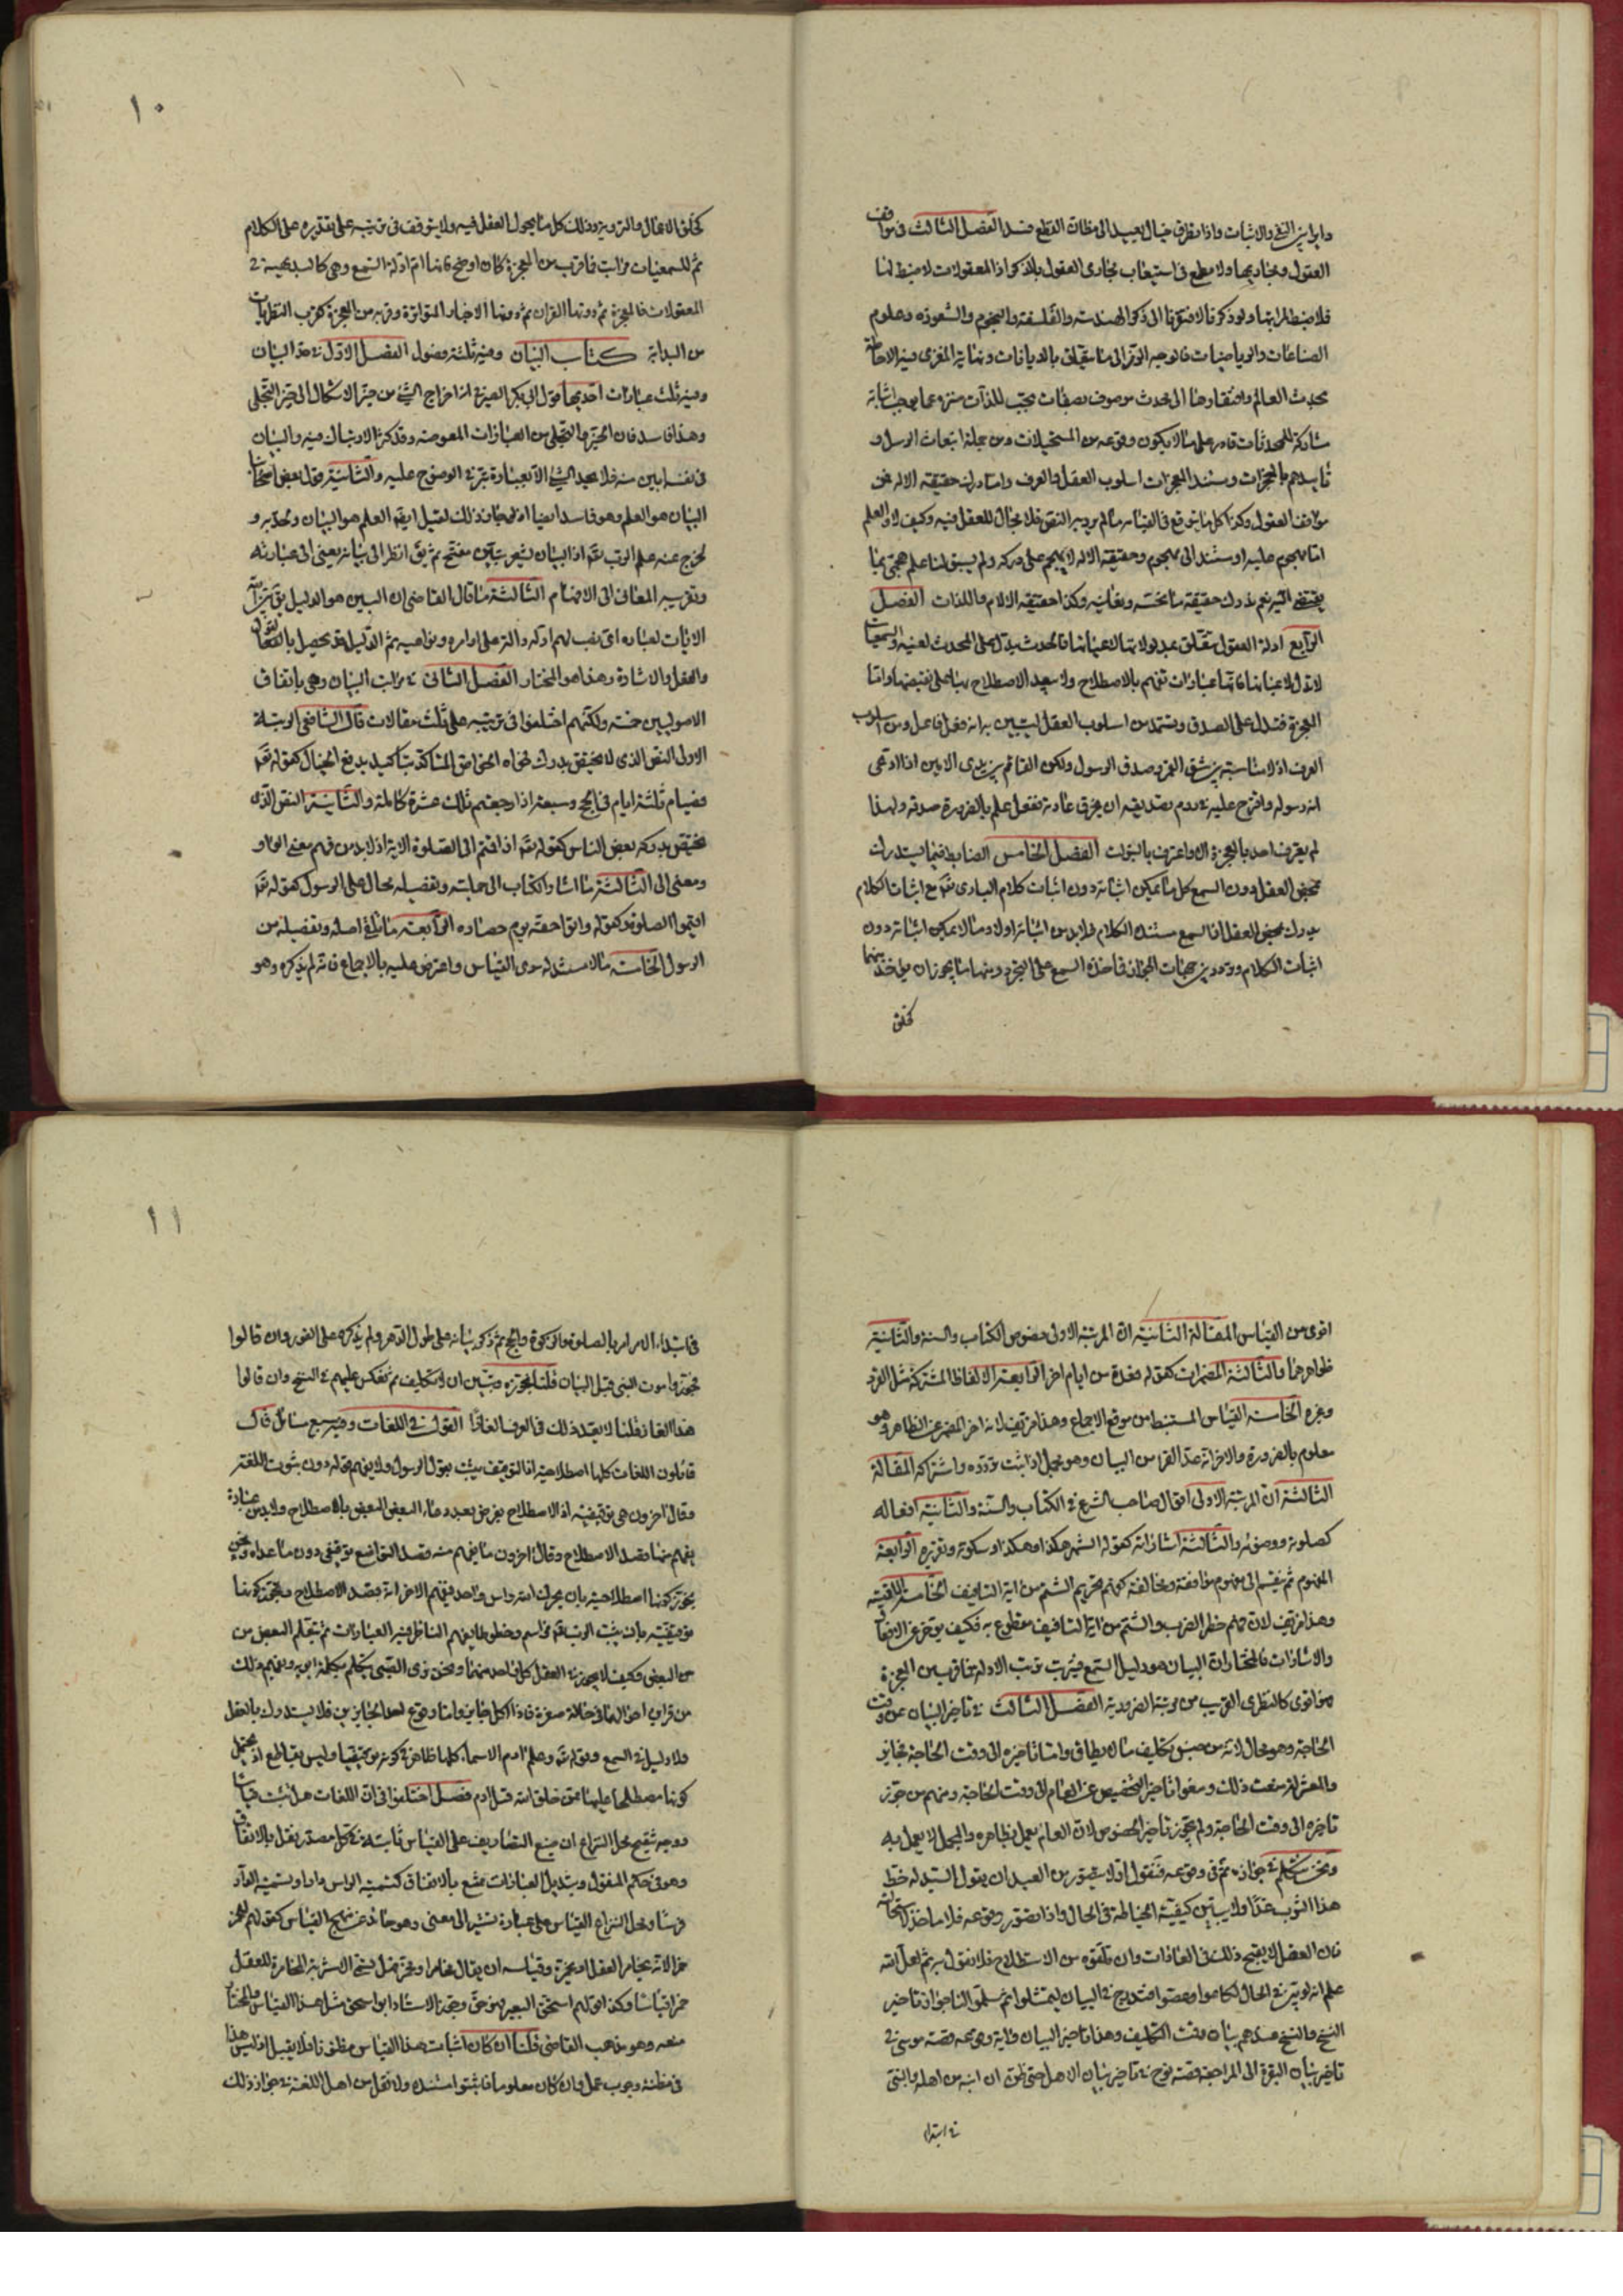 دابراين النفي والاثبات واذا تطرق خيال بعيد الى مظان القطع فسد الفصل الثالث في مواقف
العقول ومجاريها ولا مطمع في استيعاب مجاري العقول بالذكر اذ المعقولات لا ضبط لها
فلا ضبط لمراتبها ولو ذكرنا لافتقرنا الى ذكر الهندسة والفلسفة والنجوم والشعوذة وعلوم
الصناعات والرياضيات فالوجه الرمز الى ما يتعلق بالديانات ونهاية المغزى فيه الاحاطة
بحدث العالم وافتقارها الى محدث موصوف بصفات تجب للذات منزه عما يوجب اثباته
مشاركة للمحدثات قادر على ما لا يكون وقوعه من المستحيلات ومن جملة ابتعاث الرسل و
تاييدهم بالمعجزات ومستند المعجزات اسلوب العقل والعرف واما درك حقيقة الاله فمن
مواقف العقول وكذا كل ما يتوقع في الغيب ما لم يرد به النص فلا مجال للعقل فيه وكيف لا والعلم
اما مهجوم عليه او مستند الى مهجوم وحقيقة الاله لا يهجم على دركه ولم يسبق لنا علم هجمي بما
يقتضي اليه نعم ندرك حقيقة ما نحسه ونعاينه وكذا حقيقة الالام واللذات الفصل
الرابع ادلة العقول تتعلق بمدلولاتها لاعيانها فالحدث يدل على المحدث لعينه والسمعيات
لا تدل لاعيانها فانها عبارات تفهم بالاصطلاح ولا يبعد الاصطلاح بها على نقيضها واما
المعجزة فتدل على الصدق وتستمد من اسلوب العقل ليتبين به انه فعل فاعل ومن اسلوب
العرف اذ لا مناسبة بين شق القمر وصدق الرسول ولكن القائم بين يدي الامير اذا ادعى
انه رسوله واقترح عليه ان يخرق عادته ففعل علم بالضرورة صدقه ولهذا
لم يعرف احد بالمعجزة الا واعترف بالنبوات الفصل الخامس الضابط فيما يستدرك
بمحض العقل دون السمع كل ما يمكن اثباته دون اثبات كلام الباري تعالى مع اثبات الكلام
يدرك بمحض العقل اذ السمع مستند الكلام فلا بد من اثباته اولا وما لا يمكن اثباته دون
اثبات الكلام وتردد بين جهات الجواز فماخذه السمع على التجرد ومنها ما يجوز ان يؤخذ منهما
كخلق
١٠
كخلق الاعمال والرؤية وذلك كل ما يجول العقل فيه ولا يتوقف في ترتيبه على تقديره على الكلام
ثم للسمعيات مراتب فما قرب من المعجزة كان اوضح فانها ام ادلة السمع وهي كالبديهية في
المعقولات فالمعجزة ثم دونها القران ثم دونها الاخبار المتواترة وقربه من المعجزة كقرب النظريات
من البداية كتاب البيان وفيه ثلثة فصول الفصل الاول في حد البيان
وفيه ثلث عبارات احديها قول ابي بكر الصيرفي انه اخراج الشيء من حيز الاشكال الى حيز التجلي
وهذا فاسد فان الحيز والتجلي من العبارات المعوصة وقد كثر الارتباك فيه والبيان
في نفسه ابين منه فلا يحد الشيء الا بعبارة تبز في الوضوح عليه والثانية قول بعض اصحابنا
البيان هو العلم وهو فاسد ايضا اذ لو جاز ذلك لقيل ايضا العلم هو البيان ونحده به و
يخرج عنه علم الرب تعالى اذ البيان يشعر بتبين مفتتح ثم يقال انظر الى بيانه يعني الى عبارته
وتقريبه المعاني الى الافهام الثالثة ما قال القاضي ان البين هو الدليل يقال بين الله
الايات لعباده اي نصب لهم ادلة دالة على اوامره ونواهيه ثم الدليل قد يحصل بالقول والفعال
والعقل والاشارة وهذا هو المختار الفصل الثاني في مراتب البيان وهي باتفاق
الاصوليين خمسة ولكنهم اختلفوا في ترتيبه على ثلث مقالات قال الشافعي الرتبة
الاولى النص الذي لا يختص بدرك فحواه الخواص المتاكد بتاكيد يدفع الخيال كقوله تعالى
فصيام ثلثة ايام في الحج وسبعة اذا رجعتم تلك عشرة كاملة والثانية النص الذي
يختص بدركه بعض الناس كقوله تعالى اذا قمتم الى الصلوة الاية اذ لا بد من فهم معنى الواو
ومعنى الى الثالثة ما اشار الكتاب الى جملته وتفصيله محال على الرسول كقوله تعالى
اقيموا الصلوة وكقوله واتوا حقه يوم حصاده الرابعة ما تلقى اصله وتفصيله من
الرسول الخامسة ما لا مستند له سوى القياس واعترض عليه بالاجماع فانه لم يذكره وهو
اقوى من القياس المقالة الثانية ان المرتبة الاولى نصوص الكتاب والسنة والثانية
ظواهرهما والثالثة المضمرات كقوله فعدة من ايام اخر الرابعة الالفاظ المشتركة مثل القرء
وغيره الخامسة القياس المستنبط من موقع الاجماع وهذا مزيف لانه اخر المضمر عن الظاهر وهو
معلوم بالضرورة والاخر انه عد القرء من البيان وهو مجمل اذا ثبت تردده واشتراكه المقالة
الثالثة ان المرتبة الاولى اقوال صاحب الشرع في الكتاب والسنة والثانية افعاله
كصلوته ووضوئه والثالثة اشاراته كقوله الشهر هكذا وهكذا وسكوته وتقريره الرابعة
المفهوم ثم ينقسم الى مفهوم موافقة ومخالفة كفهم تحريم الشتم من اية التافيف الخامسة الاقيسة
وهذا مزيف لان فهم حظر الضرب والشتم من اية التافيف مقطوع به فكيف يؤخر عن الافعال
والاشارات فالمختار ان البيان هو دليل السمع فيترتب ترتب الادلة فما قرب من المعجزة
فهو اقوى كالنظري القريب من مرتبة الضرورية الفصل الثالث في تاخير البيان عن وقت
الحاجة وهو محال لانه من جنس تكليف ما لا يطاق واما تاخيره الى وقت الحاجة فجايز
والمعتزلة منعت ذلك ومنعوا تاخير التخصيص عن العام الى وقت الحاجة ومنهم من جوز
تاخيره الى وقت الحاجة ولم يجوز تاخير الخصوص لان العام يعمل بظاهره والمجمل لا يعمل به
ونحن نتكلم في جوازه ثم في وقوعه فنقول اولا يتصور من العبد ان يقول السيد له خط
هذا الثوب غدا ولا يبين كيفية الخياطة في الحال واذا تصور وقوعه فلا ماخذ لاستحالته
فان العقل لا يقبح ذلك في العادات وان تلقوه من الاستصلاح فلا نقول به ثم لعل الله
علم انه لو بين في الحال لكاعوا وعصوا فتدرج في البيان ليمتثلوا ثم سلموا لنا جواز تاخير
النسخ والنسخ عندهم بيان وقت التكليف وهذا تاخير البيان واية وقوعه قصة موسى في
تاخير بيان البقرة الى المراجعة وقصة نوح في تاخير بيان الاهل حتى ظن ان ابنه من اهله والنبي
في ابتداء
١١
في ابتداء الامر امر بالصلوة والزكوة والحج ثم ذكر بيانه على طول الدهر ولم يذكره على الفور وان قالوا
فجوزوا موت النبي قبل البيان قلنا نجوزه ونتبين ان لا تكليف ثم نعكس عليهم في النسخ وان قالوا
هذا الغاز قلنا لا يعد ذلك في العرف الغازا القول في اللغات وفيه سبع مسائل قال
قائلون اللغات كلها اصطلاحية اذ التوقيف يثبت بقول الرسول ولا يفهم قوله دون ثبوت اللغة
وقال اخرون هي توقيفية اذ الاصطلاح يفرض بعد دعاء البعض البعض بالاصطلاح ولا بد من عبارة
يفهم منها قصد الاصطلاح وقال اخرون ما يفهم منه قصد التواضع توقيفي دون ما عداه ونحن
نجوز كونها اصطلاحية بان يحرك الله راس واحد فيفهم الاخر انه قصد الاصطلاح ونجوز كونها
توقيفية بان يثبت الرب تعالى مراسم وخطوطا يفهم الناظر فيه العبارات ثم يتعلم البعض من
من البعض وكيف لا يجوز في العقل كل واحد منهما ونحن نرى الصبي يتكلم بكلمة ابويه ويفهم ذلك
من قراين احوالهما في حالة صغره فاذا الكل جايز واما وقوع احد الجايزين فلا يستدرك بالعقل
ولا دليل في السمع وقوله تعالى وعلم ادم الاسماء كلها ظاهر في كونه توقيفيا وليس بقاطع اذ يحتمل
كونها مصطلحا عليها ممن خلق الله قبل ادم فصل اختلفوا في ان اللغات هل تثبت قياسا
ووجه تنقيح محل النزاع ان صيغ التصاريف على القياس ثابتة في كل مصدر نقل بالاتفاق
وهو في حكم المنقول وتبديل العبارات ممتنع بالاتفاق كتسمية الراس دارا وتسمية الدار
فرسا ومحل النزاع القياس على عبارة تشير الى معنى وهو حائد عن منهج القياس كقولهم للخمر
خمر لانه يخامر العقل او يخمره وقياسه ان يقال مخامر او مخمر فهل تسمى الاشربة المخامرة للعقل
خمرا قياسا وكذا قولهم استحق البعير فهو حق وجوز الاستاذ ابو اسحق مثل هذا القياس والمختار
منعه وهو مذهب القاضي قلنا ان كان اثبات هذا القياس مظنونا فلا يقبل اذ ليس هذا
في مظنة وجوب عمل وان كان معلوما فاثبتوا مستنده ولا نقل من اهل اللغة في جواز ذلك